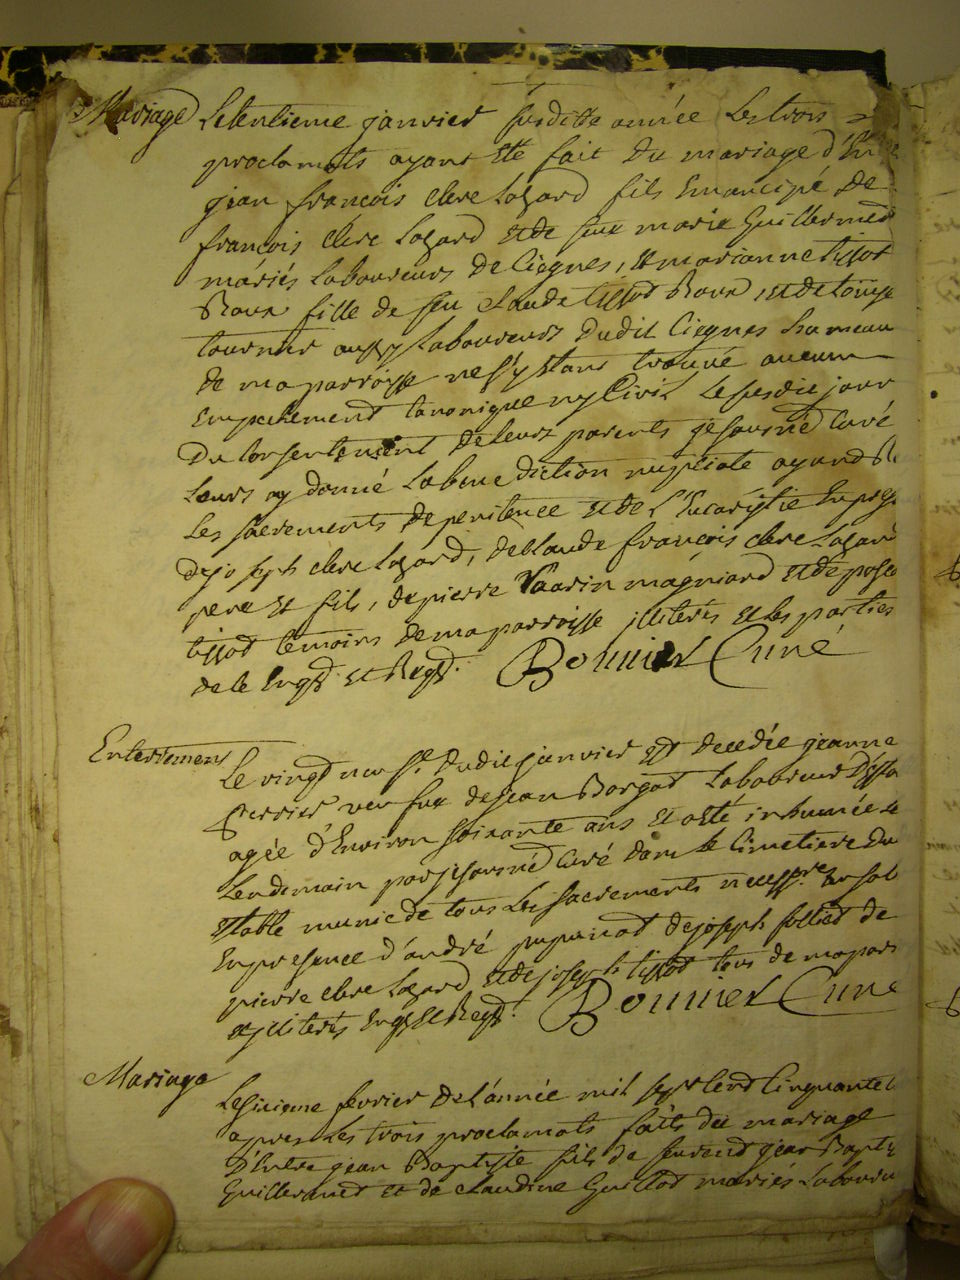 Mariage
Letentieme janvier susditte année Les trois
proclamats ayant ête fait du mariage d'En
jean françois clerc Lazard fils Emancipé de
françois clerc Lazard et de feux marie Guillermet
mariés Laboureurs de Ciegnes, et marianne tissot
Roux fille de feu claude tissot Roux, et de Louise
tournier aussy Laboureurs dudit Ciegnes hameau
de ma parroisse ne s'y Etant trouvé aucun
Empechement Canonique ny Civil Le susdit jour
Du Consentement de leurs parents je sousné Curé
Leurs ay donné La benediction nuptiale ayand
Les sacrements de penitence et de L'Eucaristie En pres
de joseph clerc Lazard, de claude françois clerc Lazard
pere et fils, de pierre Vaarin magniard et de
tissot temoins de ma parroisse illiterés et les parties
de ce Enqd et Reqd. Bonnier Curé
Enterrement
Le vingt neufe. dudit janvier est decedée jeanne
Perrier veufue de jean Borgat Laboureur
agée d'Environ soixante ans et a été inhumée Le
Lendemain par je sousné Curé dans le Cimetiere du
munie de tous Les sacrements necessres
En presence d'andré de joseph folliet de
pierre clerc Lazard et de joseph tissot tous de ma parr
illiterés Enqs et Reqd. Bonnier Curé
Mariage
Le sixieme fevrier de L'année mil sept Cent Cinquante
apres Les trois proclamats faits du mariage
D'Entre jean Baptiste fils de jean Bapte
Guillermet et de claudine Guillot mariés Labour